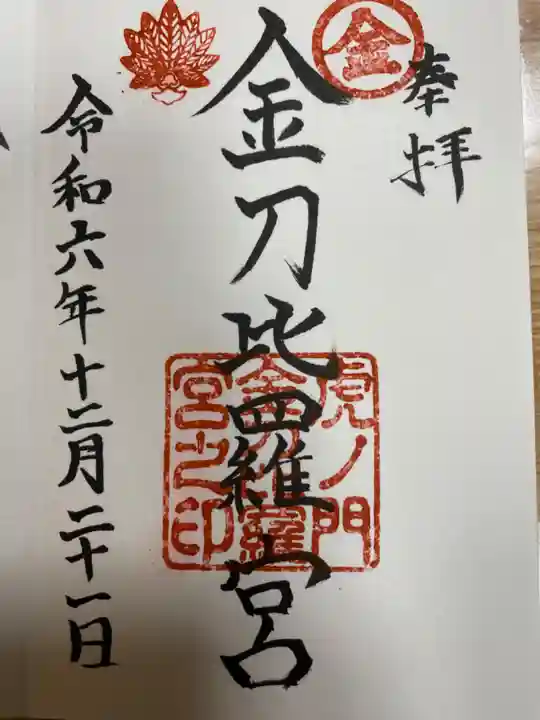 奉拝
金
金刀比羅宮
虎ノ門
金刀比羅
宮之印
令和六年十二月二十一日